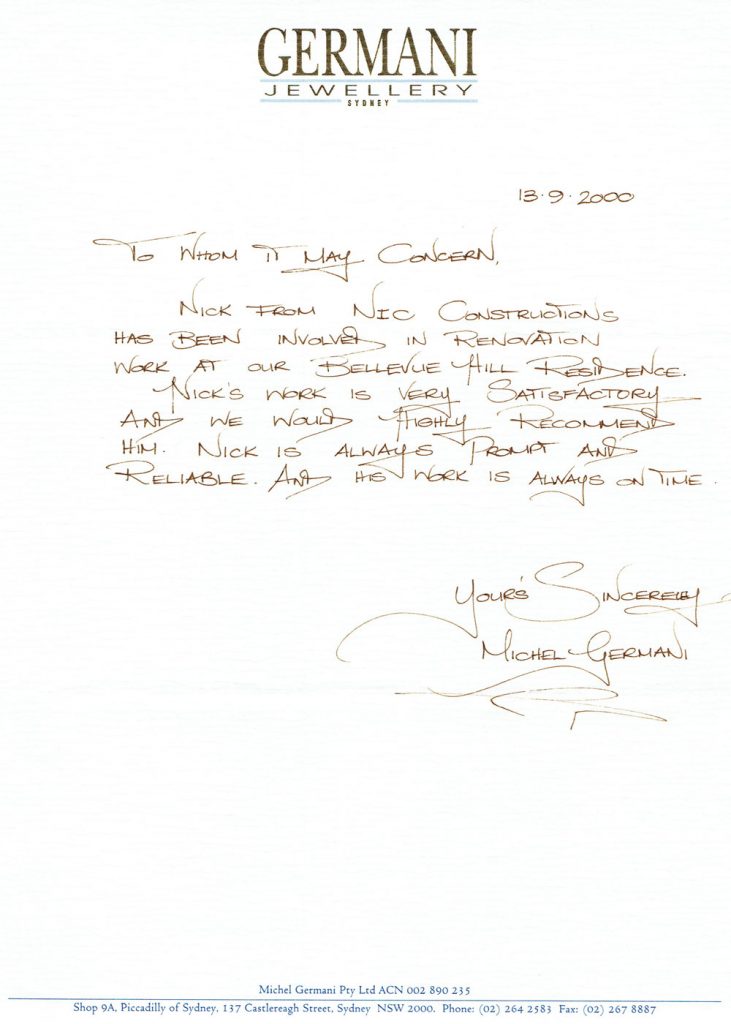 GERMANI
JEWELLERY
SYDNEY
13·9·2000
To Whom It May Concern,
Nick from Nic Constructions
has been involved in renovation
work at our Bellevue Hill Residence.
Nick's work is very satisfactory
and we would highly recommend
him. Nick is always prompt and
reliable. And his work is always on time.
Your's Sincerely
Michel Germani
Michel Germani Pty Ltd ACN 002 890 235
Shop 9A, Piccadilly of Sydney, 137 Castlereagh Street, Sydney NSW 2000. Phone: (02) 264 2583 Fax: (02) 267 8887